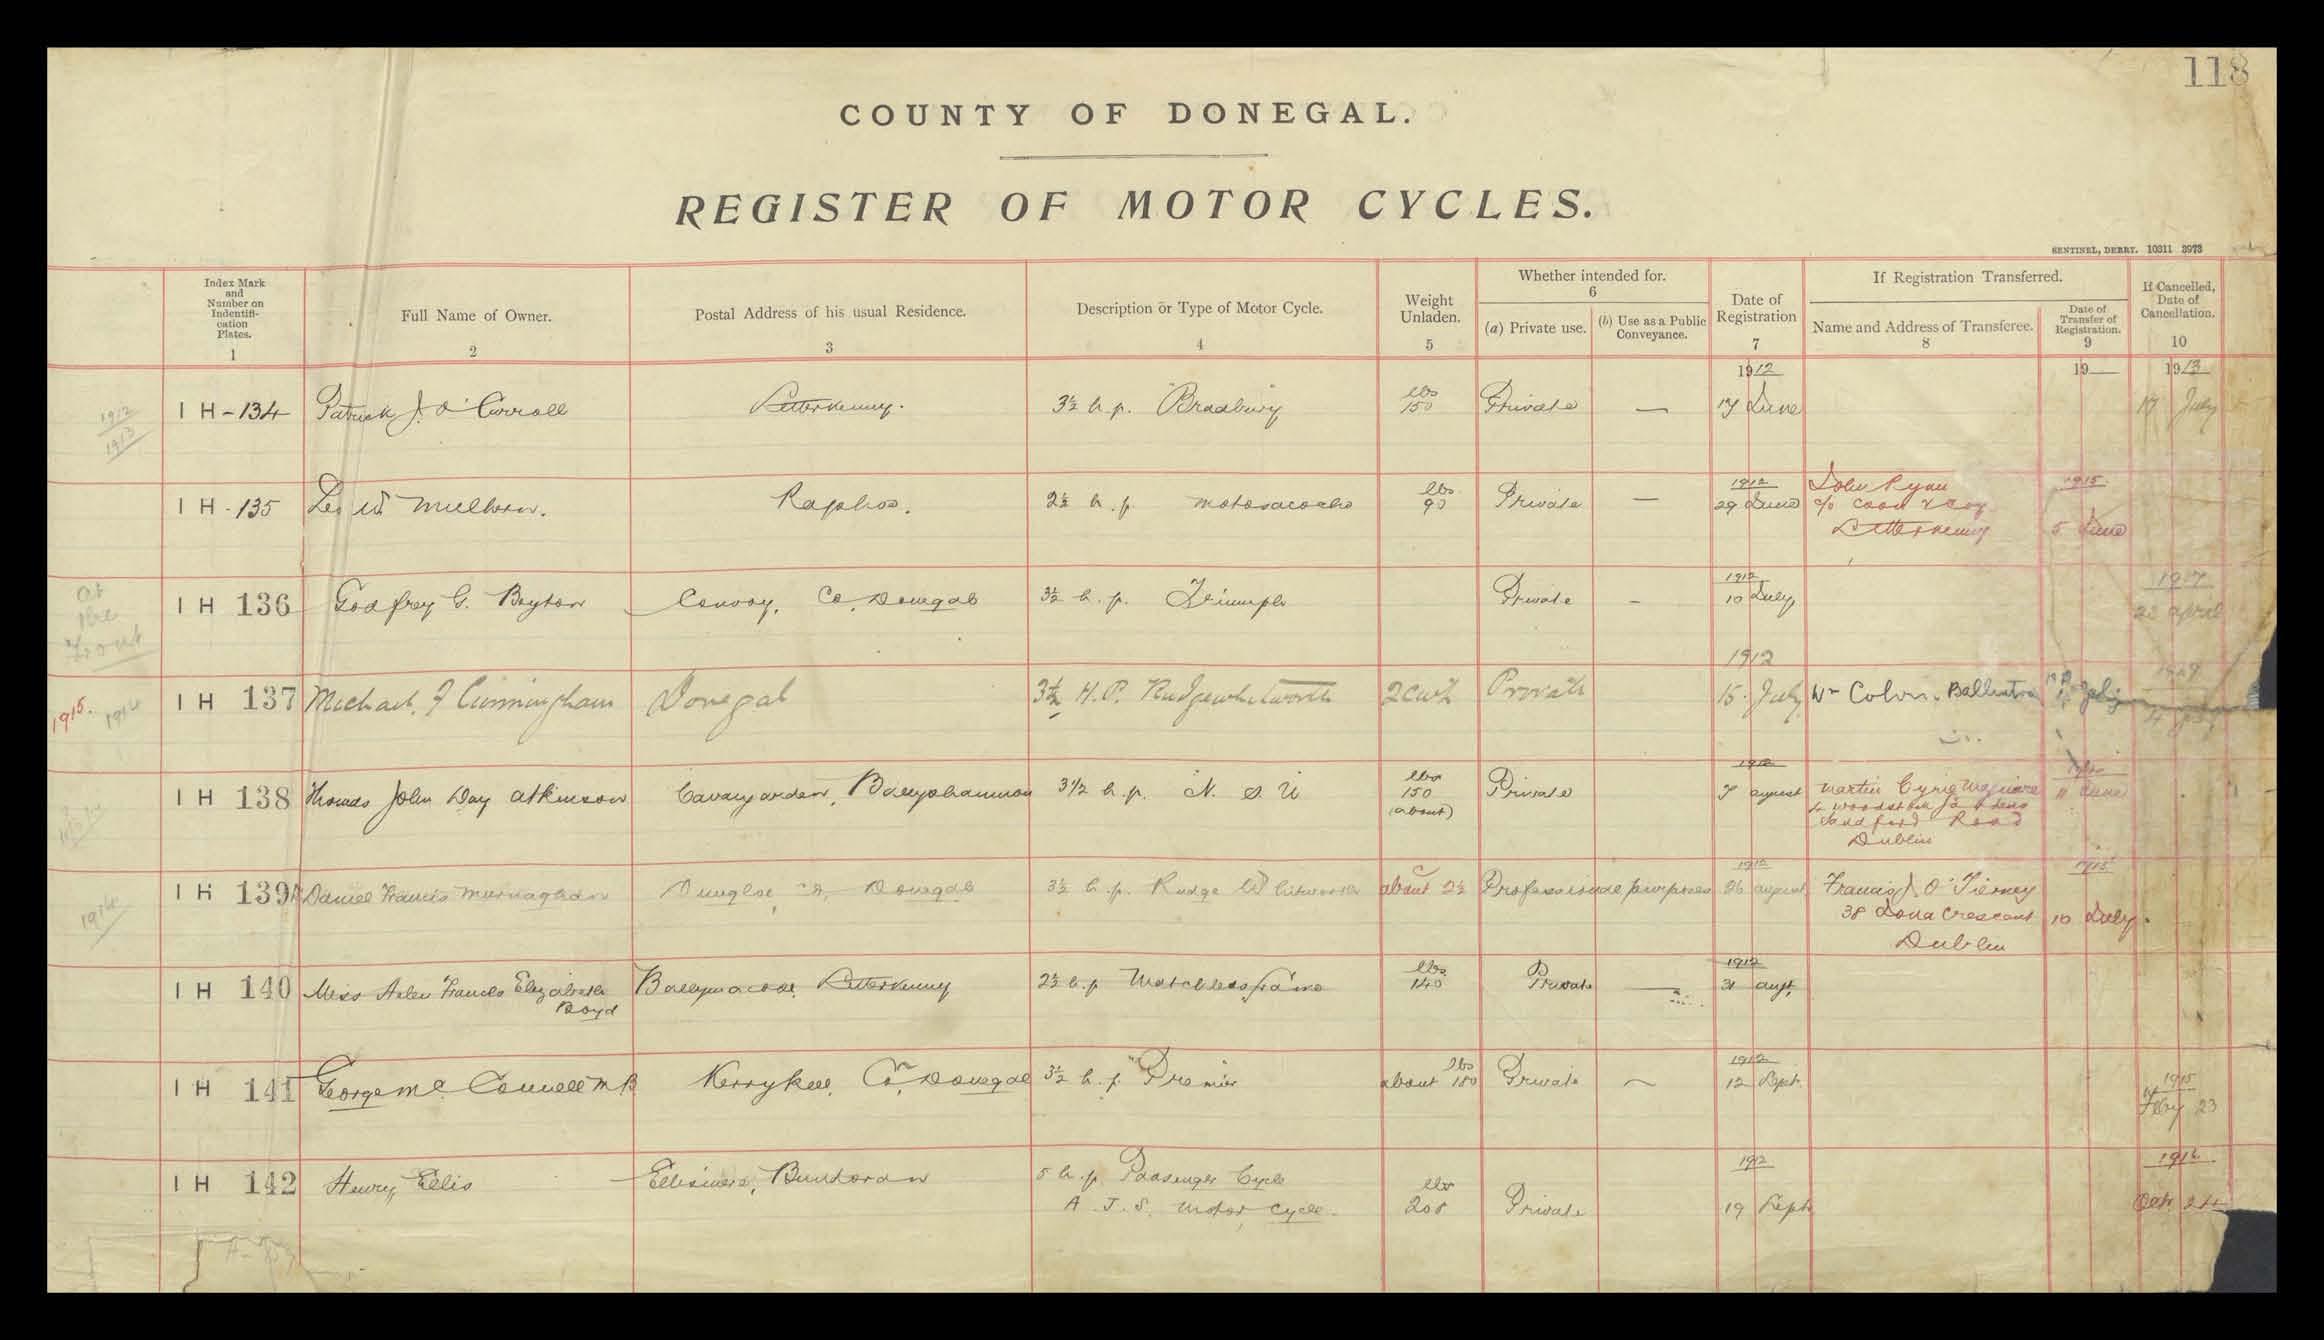 118
COUNTY OF DONEGAL.
REGISTER OF MOTOR CYCLES.
SENTINEL, DERRY. 10311 3973
Index Mark and Number on Indentifi-cation Plates. 1
Full Name of Owner. 2
Postal Address of his usual Residence. 3
Description or Type of Motor Cycle. 4
Weight Unladen. 5
Whether intended for. 6
(a) Private use.
(b) Use as a Public Conveyance.
Date of Registration 7
If Registration Transferred.
Name and Address of Transferee. 8
Date of Transfer of Registration. 9
If Cancelled, Date of Cancellation. 10
1912 19 1913
1912
1913
I H - 134 Patrick J. O'Carroll Letterkenny. 3½ h.p. Bradbury lbs 150 Private — 17 June 17 July
I H - 135 Mulhern. Raphoe. 2½ h.p. motosacoche lbs 90 Private — 1912 29 June John Ryan 1915
c/o
Letterkenny 5 June
At the Front
I H 136 Godfrey G. Boyton Convoy, Co. Donegal 3½ h.p. Triumph Private – 1912 10 July 1917 22 April
1915. 1914
I H 137 Michael F Cunningham Donegal 3½ H.P. Rudgewhitworth 2cwt Private 1912 15 July Wm July
I H 138 Thomas John Day Atkinson Cavangarden, Ballyshannon 3½ h.p. N. S. U lbs 150 (about) Private 1912 7 August Martin Cyril Maguire 11 June
4 Woodstock Gardens
Sandford Road
Dublin
1914
I H 139 Daniel Francis Murnaghan Dungloe, Co. Donegal 3½ h.p. Rudge Whitworth about 2½ Professional purposes 1912 26 August Francis J. O'Tierney 1915
38 Iona Crescent 10 July.
Dublin
I H 140 Miss Helen Frances Elizabeth Boyd Ballymacool Letterkenny 2½ h.p lbs 140 Private — 1912 31 Augt,
I H 141 George Mc Connell M B Kerrykeel, Co. Donegal 3½ h.p. Premier about lbs 180 Private – 1912 12 Sept. 1915 Feby 23
I H 142 Henry Ellis Ellesmere, Bundoran 5 h.p. Passenger Cycle
A. J. S. Motor Cycle. lbs 208 Private 1912 19 Sept 1916